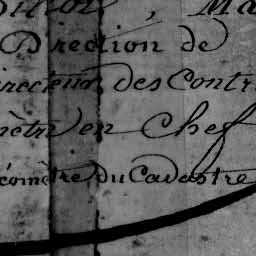 , Ma
Direction de
irecteur des Contri
mètre en Chef
éomètre du Cadastre